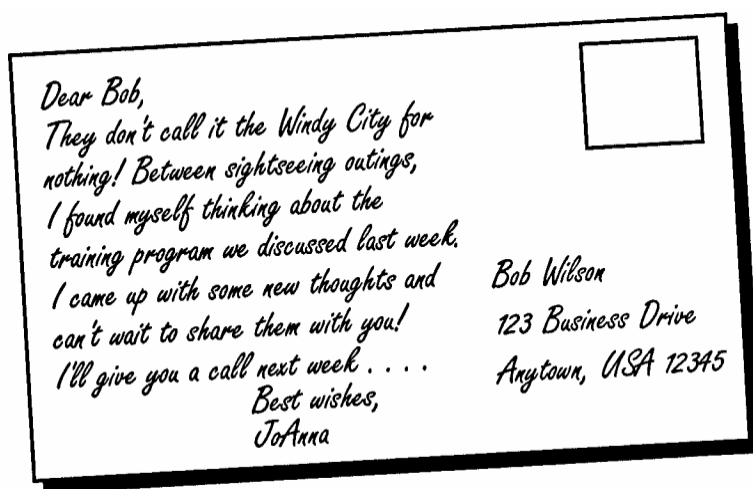 Dear Bob,
They don't call it the Windy City for
nothing! Between sightseeing outings,
I found myself thinking about the
training program we discussed last week.
I came up with some new thoughts and
can't wait to share them with you!
I'll give you a call next week . . . .
Best wishes,
JoAnna
Bob Wilson
123 Business Drive
Anytown, USA 12345